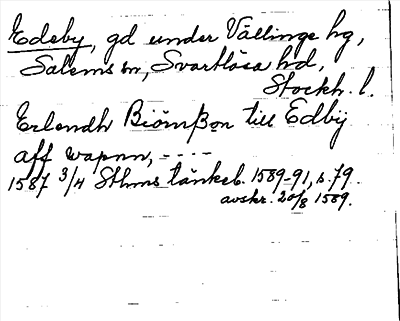 Edeby, gd under Vällinge hg,
Salems sn, Svartlösa hd,
Stockh. l.
Erlendh Biörnßon till Edbÿ
aff wapnn, - - - -
1587 3/4 Sthms tänkeb. 1589-91, s. 79.
avskr. 20/8 1589.